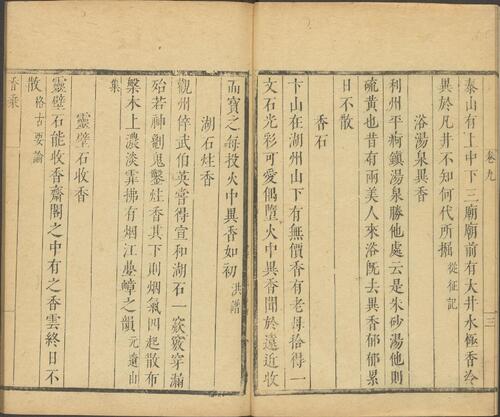 卷九
三
泰山有上中下三廟廟前有大井水極香冷
異於凡井不知何代所掘 從征記
浴湯泉異香
利州平痾鎮湯泉勝他處云是朱砂湯他則
硫黃也昔有兩美人來浴既去異香郁郁累
日不散
香石
卞山在湖州山下有無價香有老母拾得一
文石光彩可愛偶墮火中異香聞於遠近收
而寶之每投火中異香如初 洪譜
湖石炷香
觀州倅武伯英嘗得宣和湖石一窾竅穿漏
殆若神劖鬼鑿炷香其下則烟氣四起散布
槃木上濃淡霏拂有烟江疊嶂之韻 元遺山
集
靈璧石收香
靈璧石能收香齋閣之中有之香雲終日不
散 格古要論
香乘